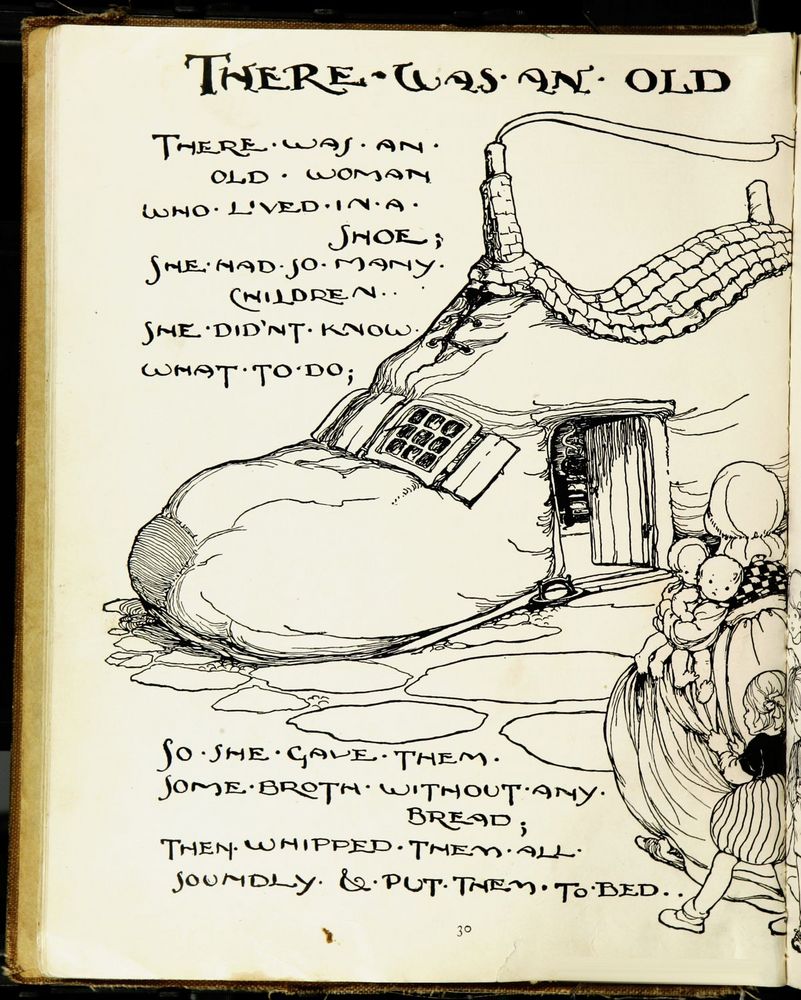 THERE·WAS·AN·OLD
THERE·WAS·AN·
OLD·WOMAN
WHO·LIVED·IN·A·
SHOE;
SHE·HAD·SO·MANY·
CHILDREN··
SHE·DID'NT·KNOW·
WHAT·TO·DO;
SO·SHE·GAVE·THEM·
SOME·BROTH·WITHOUT·ANY·
BREAD;
THEN·WHIPPED·THEM·ALL·
SOUNDLY·&·PUT·THEM·TO·BED··
30